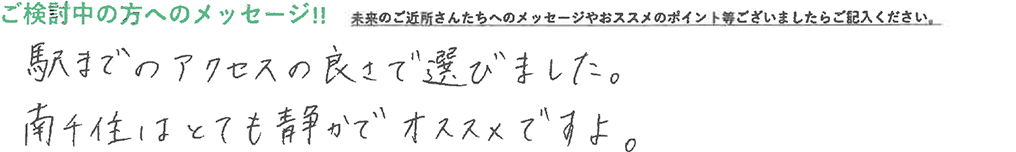 ご検討中の方へのメッセージ!!
未来のご近所さんたちへのメッセージやおススメのポイント等ございましたらご記入ください。
駅までのアクセスの良さで選びました。
南千住はとても静かでオススメですよ。